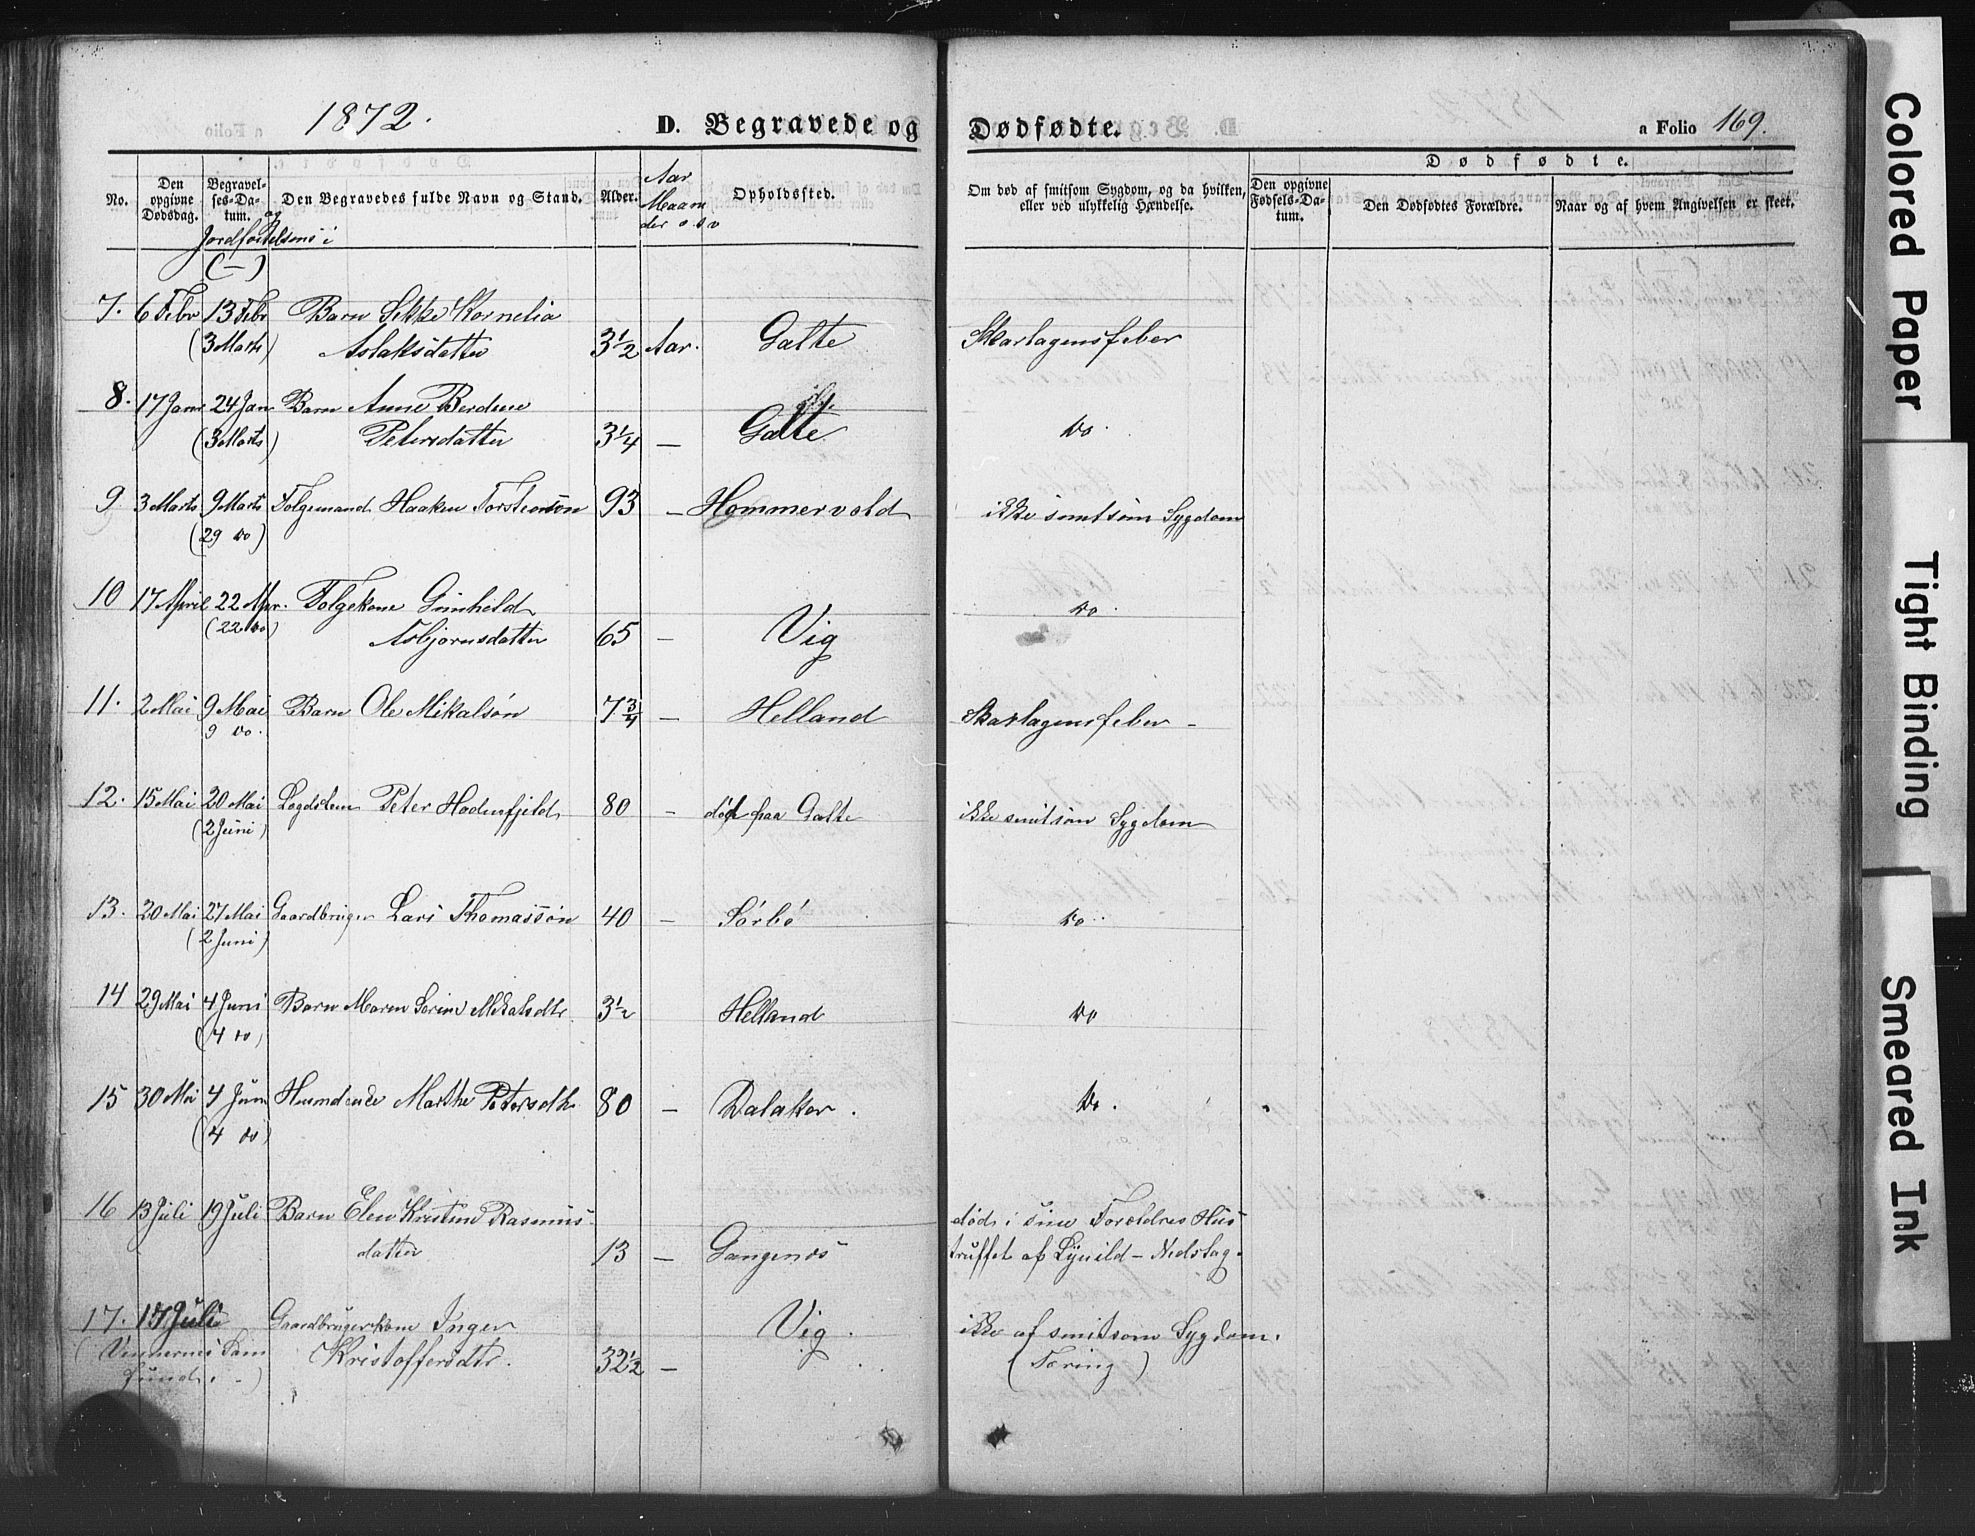 1872.
D. Begravede og Dødfødte.
a Folio 169.
No.
Den opgivne Dødsdag.
Begravelses-Datum.
og Jordfæstelsens i
(—)
Den Begravedes fulde Navn og Stand.
Alder.
Aar Maaneder o.s.v
Opholdssted.
Om død af smitsom Sygdom, og da hvilken, eller ved ulykkelig Hændelse.
Dødfødte.
Den opgivne Fødsels-Datum.
Den Dødfødtes Forældre.
Naar og af hvem Angivelsen er skeet.
7. 6 Febr 13 Febr Barn Sikke Kornelia
(3 Marts) Aslaksdatter 3½ Aar. Galte Skarlagensfeber
8. 17 Janr 24 Jan Barn Anne Berdine
(3 Marts) Petersdatter 3¼ — Galte do.
9 3 Marts 9 Marts Folgemand Haaken Torstensøn 93 — Hommervold ikke smitsom Sygdom
(29 do)
10 17 April 22 Apr. Folgekone Gunhild
(22 do) Asbjørnsdatter 65 — Vig do.
11. 2 Mai 9 Mai Barn Ole Mikalsøn 7¾ — Helland Skarlagensfeber —
9 do.
12. 15 Mai 20 Mai Lægdslem Peter Hodnefjeld 80 — død paa Galte ikke smitsom Sygdom
(2 Juni)
13. 20 Mai 27 Mai Gaardbruger Lars Thomassøn 40 — Sørbø do.
(2 Juni)
14 29 Mai 4 Juni Barn Maren Serine Mikalsdtr. 3½ Helland do
(4 do)
15 30 Mai 4 Juni Marthe Petersdtr 80 — Dalaker. do.
(4 do)
16 13 Juli 19 Juli Barn Elen Kristine Rasmus-
datter 13 — Gangenæs
død i sine Foreldres Hus
truffet af Lynild-Nedslag.
17. 17 Juli Gaardbrugerkone Inger Vig. ikke af smitsom Sygdom.
Kristoffersdtr. 32½ — (Tæring)
Colored Paper
Tight Binding
Smeared Ink